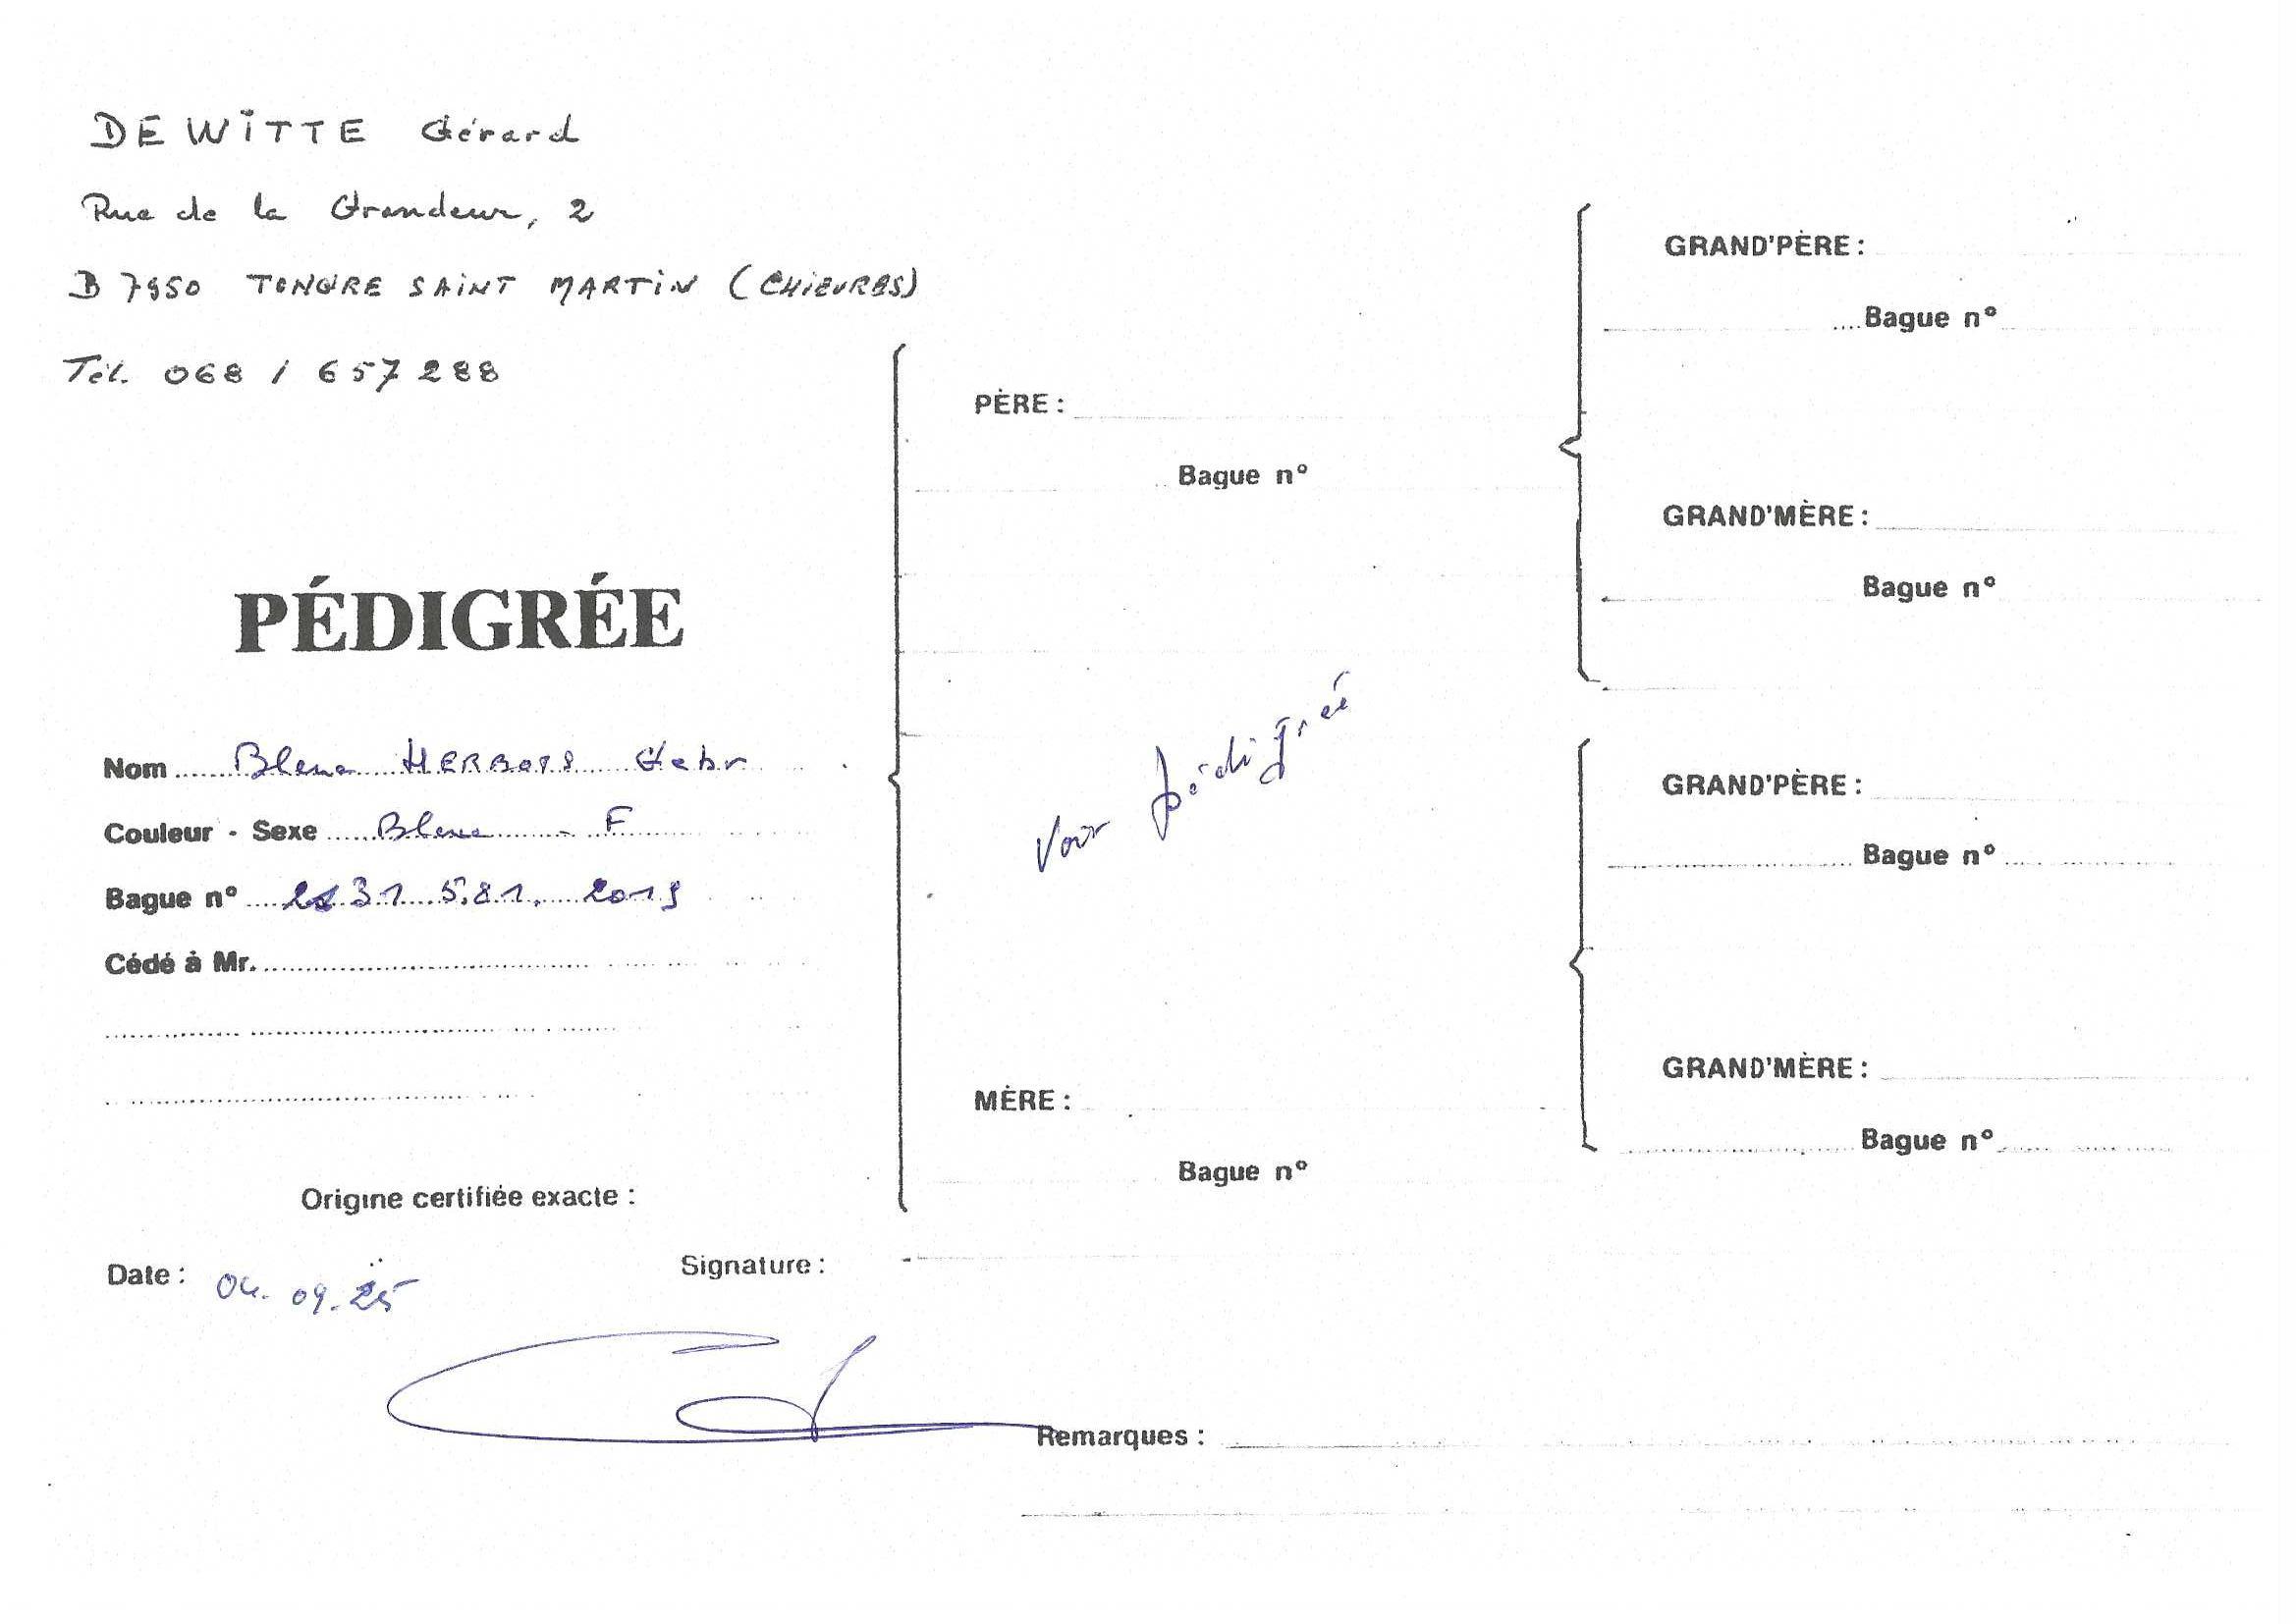 DEWITTE Gérard
Rue de la Grandeur, 2
B 7950 TONGRE SAINT MARTIN (CHIEVRES)
Tél. 068 / 657288
PÉDIGRÉE
Nom Bleue HERBOTS Gebr
Couleur - Sexe Bleue - F
Bague n° 2131581. 2019
Cédé à Mr.
Origine certifiée exacte :
Date : 04.09.25
Signature :
PÈRE :
Bague n°
Voir pédigrée
MÈRE :
Bague n°
GRAND'PÈRE :
Bague n°
GRAND'MÈRE :
Bague n°
GRAND'PÈRE :
Bague n°
GRAND'MÈRE :
Bague n°
Remarques :